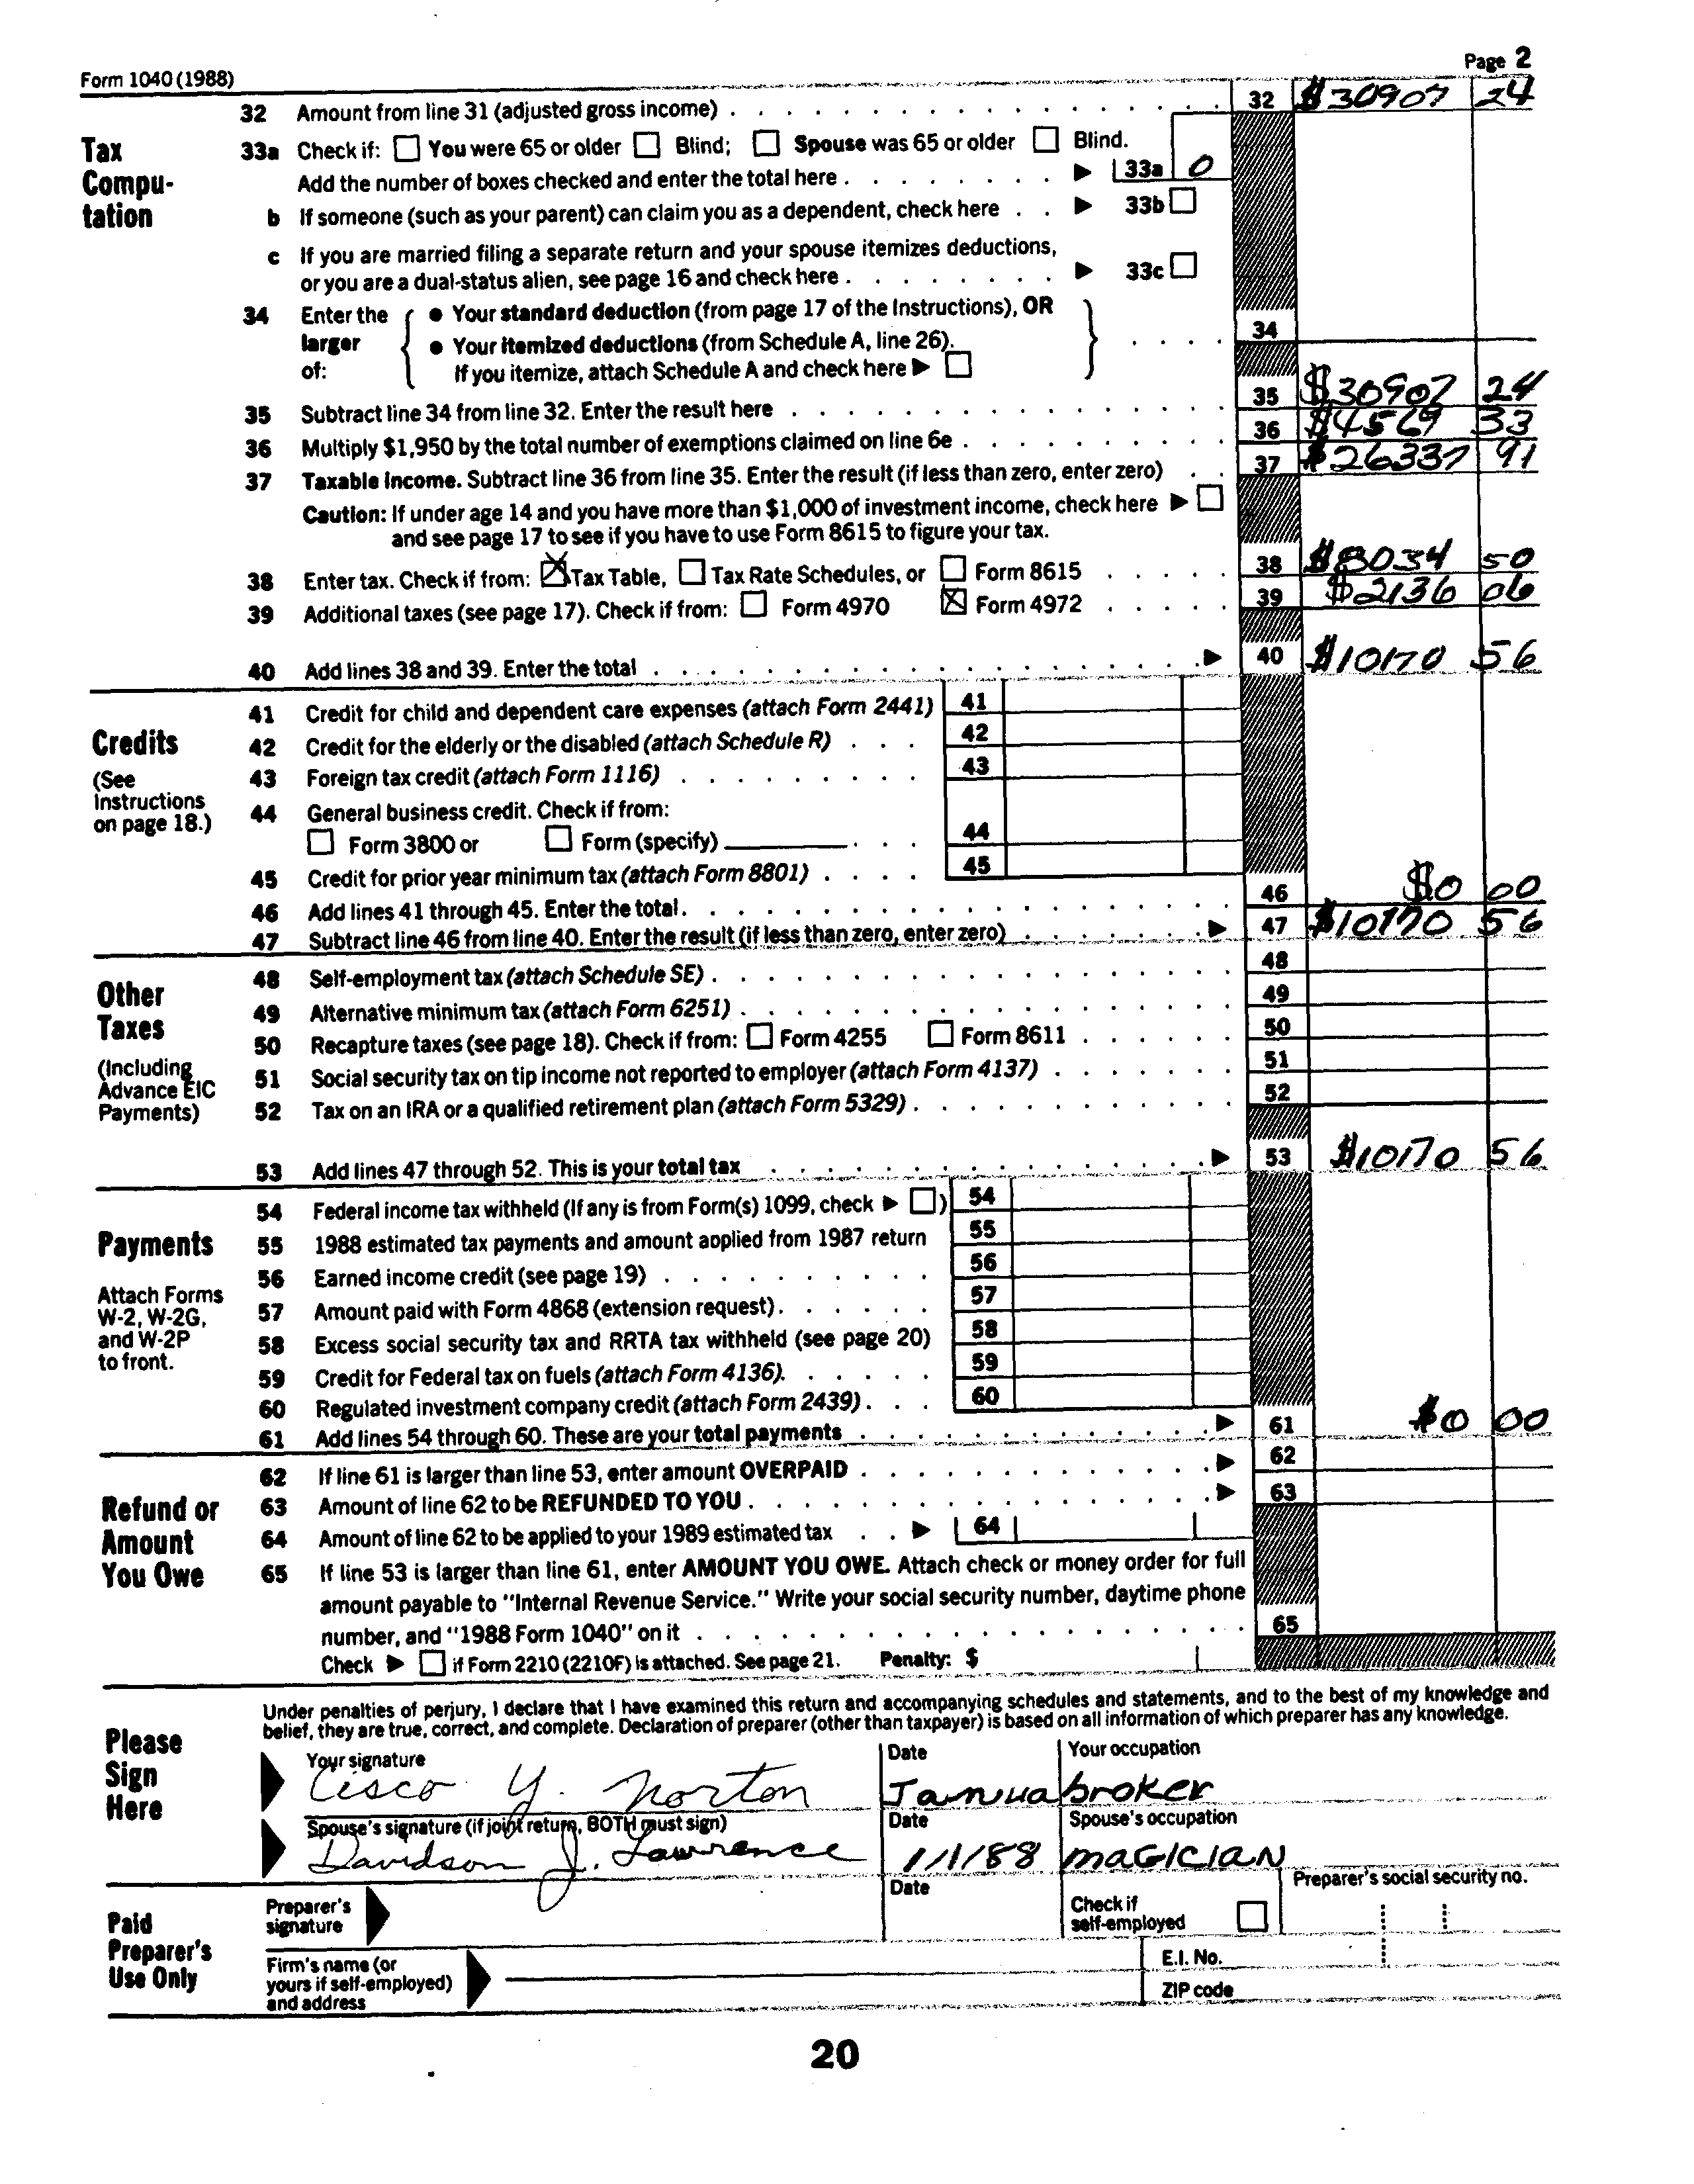 Form 1040 (1988) Page 2
Tax Compu-tation
32 Amount from line 31 (adjusted gross income) . . . 32 $30907 24
33a Check if: You were 65 or older Blind; Spouse was 65 or older Blind.
Add the number of boxes checked and enter the total here . . . 33a 0
b If someone (such as your parent) can claim you as a dependent, check here . . 33b
c If you are married filing a separate return and your spouse itemizes deductions,
or you are a dual-status alien, see page 16 and check here . . . 33c
34 Enter the larger of:
• Your standard deduction (from page 17 of the Instructions), OR
• Your itemized deductions (from Schedule A, line 26).
If you itemize, attach Schedule A and check here
34
35 Subtract line 34 from line 32. Enter the result here . . . 35 $30907 24
36 Multiply $1,950 by the total number of exemptions claimed on line 6e . . . 36 $4569 33
37 Taxable income. Subtract line 36 from line 35. Enter the result (if less than zero, enter zero) . . 37 $26337 91
Caution: If under age 14 and you have more than $1,000 of investment income, check here
and see page 17 to see if you have to use Form 8615 to figure your tax.
38 Enter tax. Check if from: X Tax Table, Tax Rate Schedules, or Form 8615 . . . 38 $8034 50
39 Additional taxes (see page 17). Check if from: Form 4970 X Form 4972 . . . 39 $2136 06
40 Add lines 38 and 39. Enter the total . . . 40 $10170 56
Credits
(See Instructions on page 18.)
41 Credit for child and dependent care expenses (attach Form 2441) 41
42 Credit for the elderly or the disabled (attach Schedule R) . . . 42
43 Foreign tax credit (attach Form 1116) . . . 43
44 General business credit. Check if from:
Form 3800 or Form (specify) . . . 44
45 Credit for prior year minimum tax (attach Form 8801) . . . 45
46 Add lines 41 through 45. Enter the total . . . 46 $0 00
47 Subtract line 46 from line 40. Enter the result (if less than zero, enter zero) . . . 47 $10170 56
Other Taxes
(Including Advance EIC Payments)
48 Self-employment tax (attach Schedule SE) . . . 48
49 Alternative minimum tax (attach Form 6251) . . . 49
50 Recapture taxes (see page 18). Check if from: Form 4255 Form 8611 . . . 50
51 Social security tax on tip income not reported to employer (attach Form 4137) . . . 51
52 Tax on an IRA or a qualified retirement plan (attach Form 5329) . . . 52
53 Add lines 47 through 52. This is your total tax . . . 53 $10170 56
Payments
Attach Forms W-2, W-2G, and W-2P to front.
54 Federal income tax withheld (If any is from Form(s) 1099, check ) 54
55 1988 estimated tax payments and amount applied from 1987 return 55
56 Earned income credit (see page 19) . . . 56
57 Amount paid with Form 4868 (extension request) . . . 57
58 Excess social security tax and RRTA tax withheld (see page 20) 58
59 Credit for Federal tax on fuels (attach Form 4136). . . . 59
60 Regulated investment company credit (attach Form 2439) . . . 60
61 Add lines 54 through 60. These are your total payments . . . 61 $0 00
Refund or Amount You Owe
62 If line 61 is larger than line 53, enter amount OVERPAID . . . 62
63 Amount of line 62 to be REFUNDED TO YOU . . . 63
64 Amount of line 62 to be applied to your 1989 estimated tax . . 64
65 If line 53 is larger than line 61, enter AMOUNT YOU OWE. Attach check or money order for full
amount payable to "Internal Revenue Service." Write your social security number, daytime phone
number, and "1988 Form 1040" on it . . . 65
Check if Form 2210 (2210F) is attached. See page 21. Penalty: $
Please Sign Here
Under penalties of perjury, I declare that I have examined this return and accompanying schedules and statements, and to the best of my knowledge and
belief, they are true, correct, and complete. Declaration of preparer (other than taxpayer) is based on all information of which preparer has any knowledge.
Your signature Date Your occupation
Cisco Y. Norton Janua broker
Spouse's signature (if joint return, BOTH must sign) Date Spouse's occupation
Davidson J. Lawrence 1/1/88 MAGICIAN
Paid Preparer's Use Only
Preparer's signature Date Check if self-employed Preparer's social security no.
Firm's name (or yours if self-employed) and address
E.I. No.
ZIP code
20